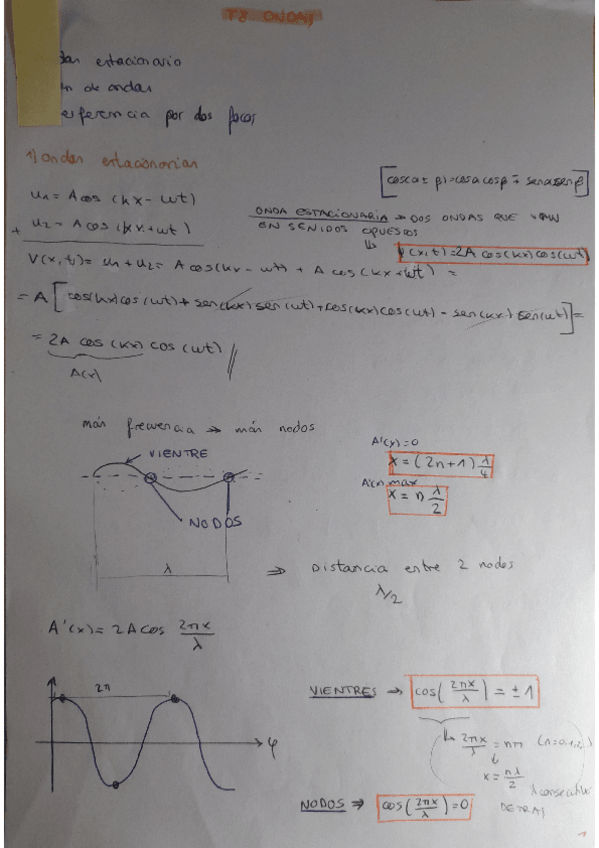 T8 ONDAS
estacionario
de ondas
erferencia por dos focos
1) ondas estacionarias
[cos(α ± β) = cosα cosβ ∓ senα senβ]
u1 = A cos (kx - wt)
+ u2 = A cos (kx + wt)
ONDA ESTACIONARIA → DOS ONDAS QUE VAN
EN SENIDOS OPUESTOS
↳ V(x,t) = 2A cos(kx) cos(wt)
V(x,t) = u1 + u2 = A cos(kx - wt) + A cos(kx + wt) =
= A [cos(kx) cos(wt) + sen(kx) sen(wt) + cos(kx) cos(wt) - sen(kx) sen(wt)] =
= 2A cos(kx) cos(wt) //
A(x)
más frecuencia → más nodos
VIENTRE
NODOS
λ
A'(x) = 0
x = (2n+1) λ/4
max
x = n λ/2
⇒ Distancia entre 2 nodos
λ/2
A'(x) = 2A cos 2πx/λ
2π
φ
VIENTRES → cos(2πx/λ) = ±1
↳ 2πx/λ = nπ
x = nλ/2
NODOS ⇒ cos(2πx/λ) = 0
1